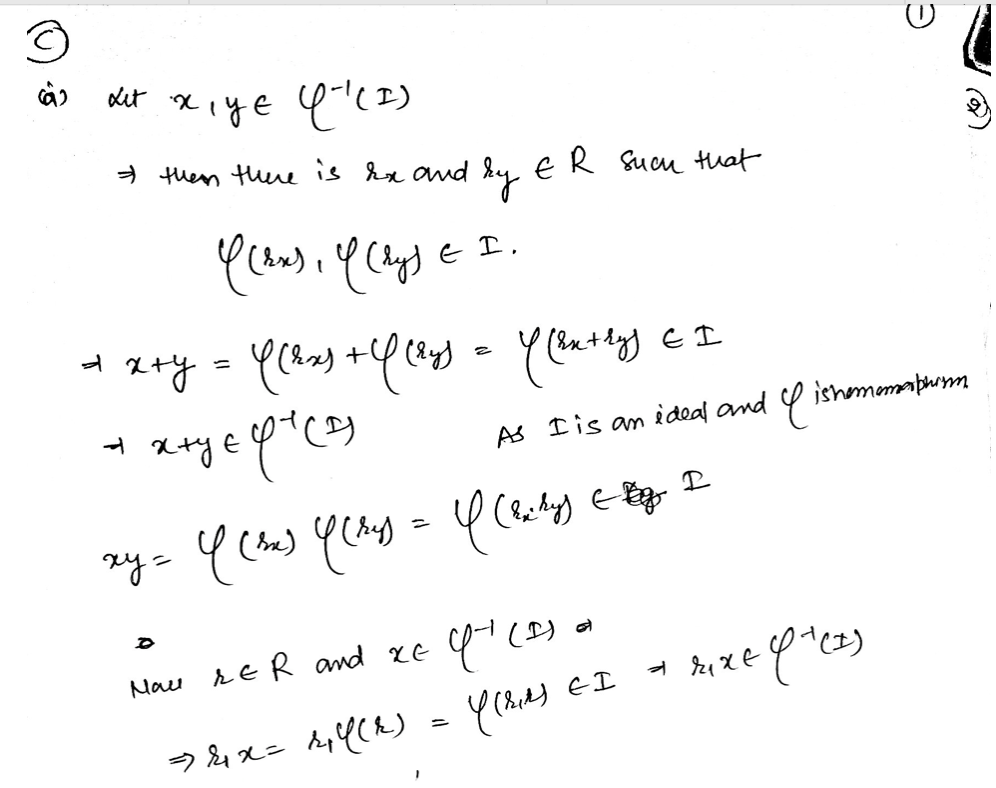 ①
Ⓒ
(a) Let x, y ∈ φ⁻¹(I)
2)
⇒ then there is rx and ry ∈ R such that
φ(rx), φ(ry) ∈ I.
⇒ x+y = φ(rx) + φ(ry) = φ(rx+ry) ∈ I
⇒ x+y ∈ φ⁻¹(I) As I is an ideal and φ is
xy = φ(rx) φ(ry) = φ(rx·ry) ∈ I
Now r ∈ R and x ∈ φ⁻¹(I) ⇒
⇒ r₁x = r₁φ(r) = φ(r₁r) ∈ I ⇒ r₁x ∈ φ⁻¹(I)